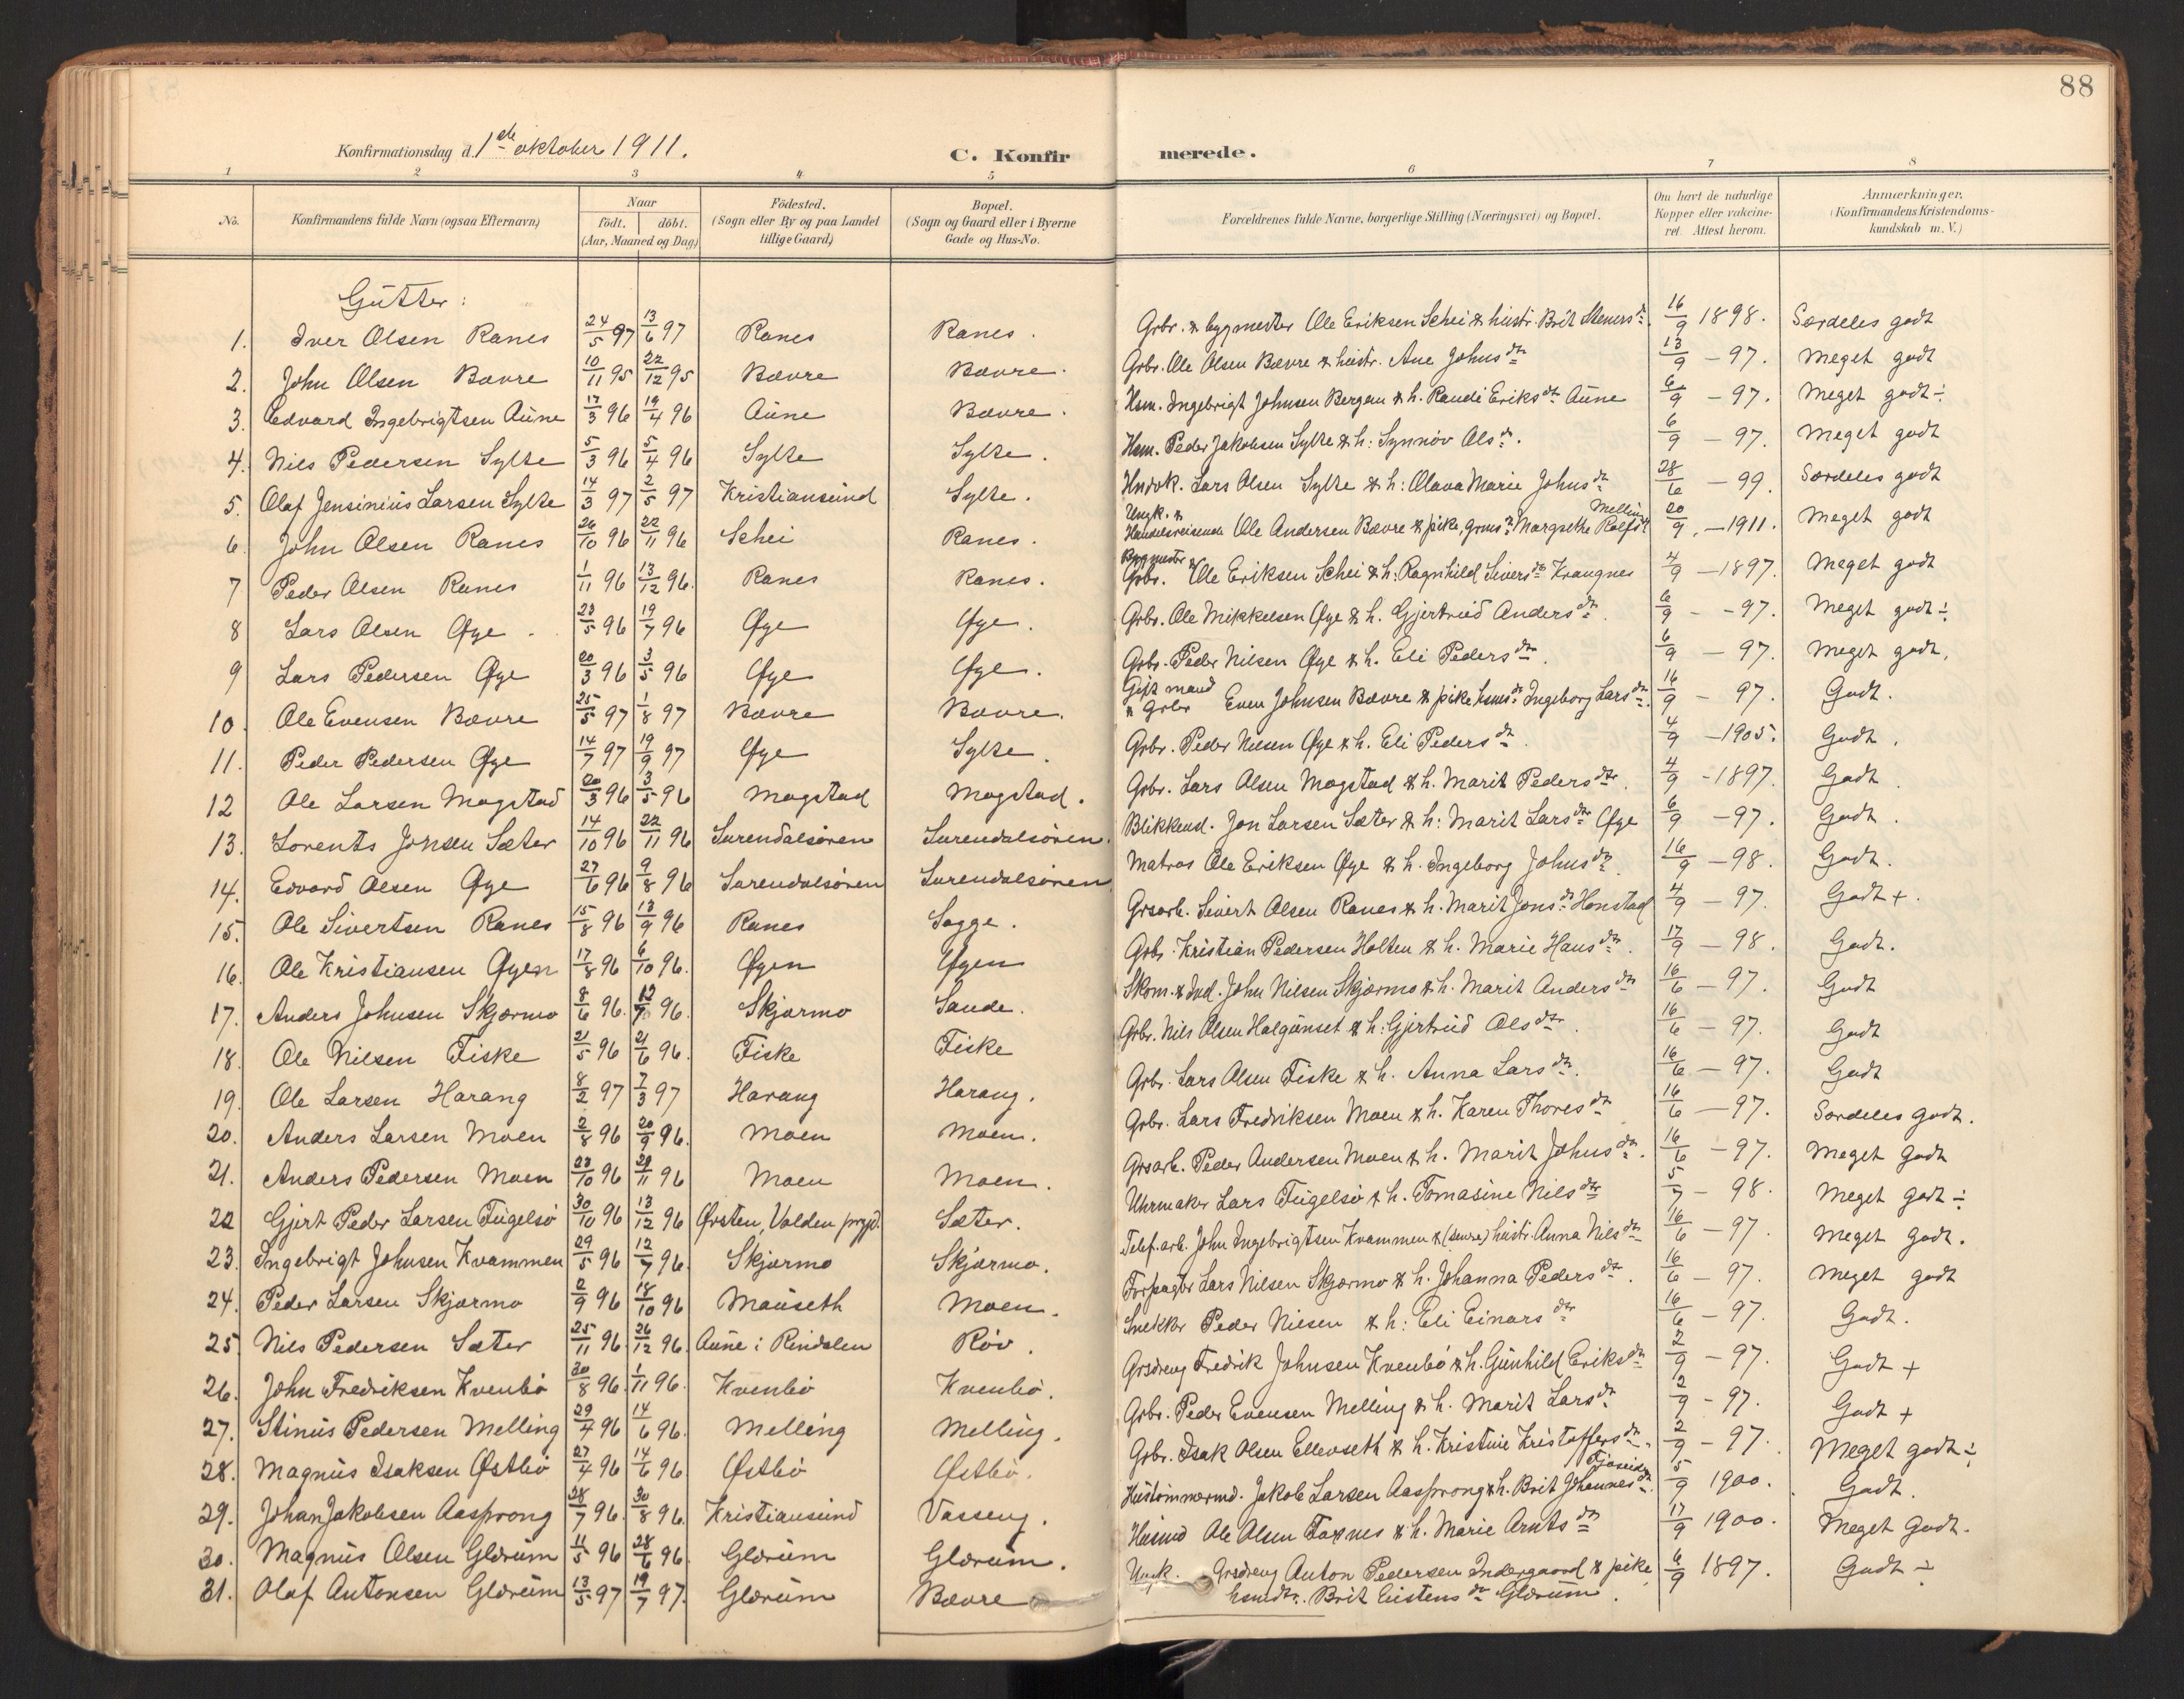 88
Konfirmationsdag d. 1ste oktober 1911.
C. Konfirmerede.
1 2 3 4 5 6 7 8
No. | Konfirmandens fulde Navn (ogsaa Efternavn) | Naar födt. döbt. (Aar, Maaned og Dag) | Födested. (Sogn eller By og paa Landet tillige Gaard) | Bopæl. (Sogn og Gaard eller i Byerne Gade og Hus-No. | Forældrenes fulde Navne, borgerlige Stilling (Næringsvei) og Bopæl. | Om havt de naturlige Kopper eller vakcineret. Attest herom. | Anmærkninger. (Konfirmandens Kristendomskundskab m. V.)
Gutter:
1. Iver Olsen Ranes 24/5 97 13/6 97 Ranes Ranes. Gbr. & bygmester Ole Eriksen Schei & hustr. Brit Steners dr. 16/9 1898. Særdeles godt
2. John Olsen Bævre 10/11 95 22/12 95 Bævre Bævre. Gbr. Ole Olsen Bævre & hustr. Ane Johnsdtr 13/9 - 97. Meget godt
3. Edvard Ingebrigtsen Aune 17/3 96 19/4 96 Aune Bævre. Hsm. Ingebrigt Johnsen Bergem & h. Randi Eriksdtr Aune 6/9 - 97. Meget godt ÷
4. Nils Pedersen Sylte 5/3 96 5/4 96 Sylte Sylte. Hsm. Peder Jakobsen Sylte & h: Synnöv Olsdr. 6/9 - 97. Meget godt
5. Olaf Jensinius Larsen Sylte 14/3 97 2/5 97 Kristiansund Sylte. Hndvk. Lars Olsen Sylte & h: Olava Marie Johnsdtr 28/6 - 99. Særdeles godt
6. John Olsen Ranes 26/10 96 22/11 96 Schei Ranes. Ungk. & Handelsreisende Ole Andersen Bævre & pike, grmsdr. Margrethe Rolfsdtr Melling 20/9 - 1911. Meget godt
7 Peder Olsen Ranes 1/11 96 13/12 96. Ranes Ranes. Bygmester & Gbr. Ole Eriksen Schei & h. Ragnhild Siversdtr Krangnes 4/9 - 1897. Meget godt
8 Lars Olsen Øye. 23/5 96 19/7 96 Øye Øye. Gbr. Ole Mikkelsen Øye & h. Gjertrud Andersdtr. 6/9 - 97. Meget godt ÷
9 Lars Pedersen Øye 20/3 96 3/5 96 Øye Øye. Gbr. Peder Nilsen Øye & h. Eli Pedersdtr. 6/9 - 97. Meget godt,
10. Ole Evensen Bævre 25/5 97 1/8 97 Bævre Bævre. Gift mand & Gbr Even Johnsen Bævre & pike hsmsdr. Ingeborg Larsdtr. 16/9 - 97. Godt.
11. Peder Pedersen Øye 14/7 97 19/9 97 Øye Sylte. Gbr. Peder Nilsen Øye & h. Eli Pedersdtr. 4/9 - 1905. Godt.
12 Ole Larsen Mogstad 20/3 96 3/5 96 Mogstad Mogstad. Gbr. Lars Olsen Mogstad & h. Marit Pedersdtr. 4/9 - 1897. Godt.
13. Lorents Jonsen Sæter 14/10 96 22/11 96 Surendalsören Surendalsören. Blikkensl. Jon Larsen Sæter & h: Marit Larsdtr Øye 6/9 - 97. Godt.
14. Edvard Olsen Øye 27/6 96 9/8 96 Surendalsören Surendalsören. Matros Ole Eriksen Øye & h. Ingeborg Johnsdtr. 16/9 - 98. Godt.
15. Ole Sivertsen Ranes 15/8 96 13/9 96 Ranes Sogge. Grsarb. Sivert Olsen Ranes & h. Marit Jonsdtr Honstad 4/9 - 97. Godt +.
16. Ole Kristiansen Øyen 17/8 96 6/10 96. Øyen Øyen Gbr. Kristian Pedersen Holten & h. Marie Hansdtr. 17/9 - 98. Godt.
17. Anders Johnsen Skjærmo 8/6 96. 12/7 96. Skjærmo Sande. Skom. & Ind. John Nilsen Skjærmo & h. Marit Andersdtr 16/6 - 97. Godt
18. Ole Nilsen Fiske 21/5 96 21/6 96. Fiske Fiske Gbr. Nils Olsen Halgunset & h: Gjertrud Olsdtr. 16/6 - 97. Godt
19. Ole Larsen Harang 8/2 97 7/3 97 Harang Harang. Gbr. Lars Olsen Fiske & h. Anna Larsdtr. 16/6 - 97. Godt
20. Anders Larsen Moen 2/8 96 20/9 96. Moen Moen. Gbr. Lars Fredriksen Moen & h. Karen Thoresdtr 16/6 - 97. Særdeles godt.
21. Anders Pedersen Moen 23/10 96 29/11 96 Moen Moen. Grsarb. Peder Andersen Moen & h. Marit Johnsdtr. 16/6 - 97. Meget godt
22 Gjert Peder Larsen Fugelsö 30/10 96 13/12 96 Ørsten, Volden prgjd. Sæter. Uhrmaker Lars Fugelsö & h. Tomasine Nilsdtr 5/7 - 98. Meget godt ÷
23. Ingebrigt Johnsen Kvammen 29/5 96 12/7 96. Skjærmo Skjærmo. Telef.arb. John Ingebrigtsen Kvammen & hustr. Anna Nilsdtr 16/6 - 97. Meget godt.
24. Peder Larsen Skjærmo 2/9 96 18/10 96 Mauseth Moen. Forpagter Lars Nilsen Skjærmo & h. Johanna Pedersdtr. 16/6 - 97. Meget godt
25. Nils Pedersen Sæter 25/11 96. 26/12 96. Aune i Rindalen Röv. Snekker Peder Nilsen & h: Eli Einarsdtr 16/6 - 97. Godt.
26. John Fredriksen Kvenbö 30/8 96. 1/11 96. Kvenbö Kvenbö. Grsdreng Fredrik Johnsen Kvenbö & h. Gunhild Eriksdtr 2/9 - 97. Godt +
27. Stinus Pedersen Melling 29/4 96 14/6 96. Melling Melling. Gbr. Peder Evensen Melling & h. Marit Larsdtr 2/9 - 97. Godt +
28. Magnus Isaksen Østbö 27/4 96 14/6 96 Østbö Østbö. Gbr. Isak Olsen Ellevseth & h. Kristine Kristoffersdtr. 2/9 - 97. Meget godt ÷
29. Johan Jakobsen Aasprong 28/7 96. 30/8 96. Kristiansund Vasseng. Hustömmermd. Jakob Larsen Aasprong & h. Brit Johannesdtr. 5/9 1900. Godt.
30. Magnus Olsen Glærum 11/5 96 28/6 96. Glærum Glærum. Husmd Ole Olsen Foxnes & h. Marie Arntsdtr 17/9 1900. Meget Godt.
31. Olaf Antonsen Glærum 13/5 97 19/7 97. Glærum Bævre Ungk. Grsdreng Anton Pedersen Indergaard & pike hsmdtr. Brit Eistensdtr Glærum. 6/9 1897. Godt ÷